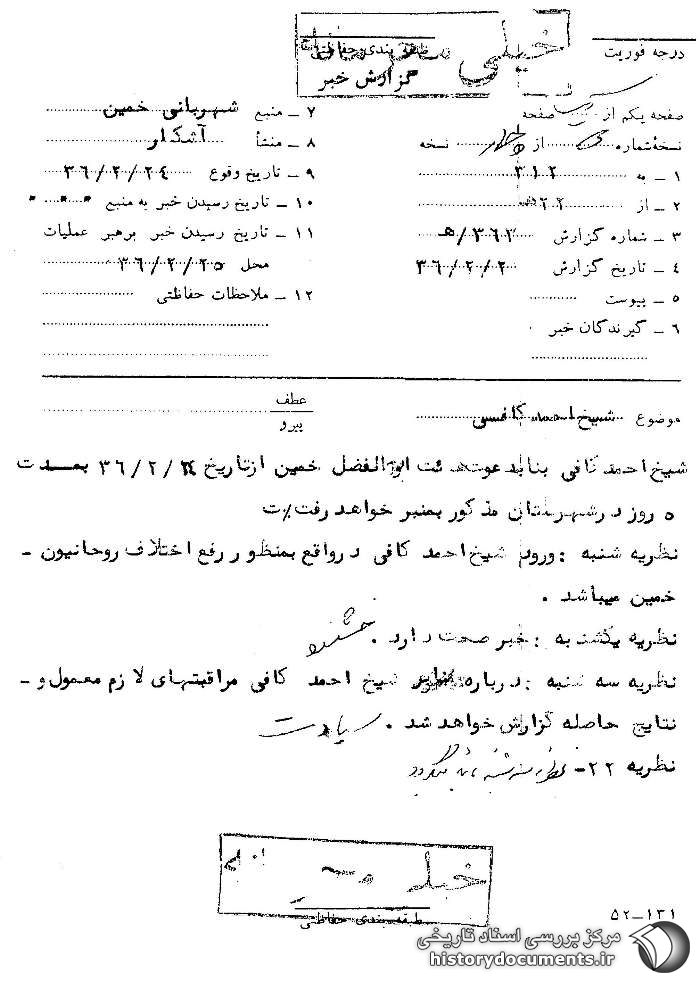 خیلی محرمانه
درجه فوریت
طبقه بندی حفاظتی
گزارش خبر
صفحه یکم از صفحه
نسخهٔ شماره از نسخه
۱ ـ به ۳۱۲
۲ ـ از ۲۲هـ
۳ ـ شماره گزارش ۳۶۲/هـ
۴ ـ تاریخ گزارش ۳۶/۲/۲
۵ ـ پیوست
۶ ـ گیرندگان خبر
۷ ـ منبع شهربانی خمین
۸ ـ منشأ آشکار
۹ ـ تاریخ وقوع ۳۶/۲/۲۴
۱۰ ـ تاریخ رسیدن خبر به منبع
۱۱ ـ تاریخ رسیدن خبر برهبر عملیات
محل ۳۶/۲/۲۵
۱۲ ـ ملاحظات حفاظتی
موضوع شیخ احمد کافی
عطف
پیرو
شیخ احمد کافی بنابدعوت هئت ابوالفضل خمین ازتاریخ ۳۶/۲/۲۴ بمدت
۵ روز در شهرستان مذکور بمنبر خواهد رفت
نظریه شنبه : ورود شیخ احمد کافی در واقع بمنظور رفع اختلاف روحانیون ـ
خمین میباشد .
نظریه یکشنبه : خبر صحت دارد .
نظریه سه شنبه : درباره منابر شیخ احمد کافی مراقبتهای لازم معمول و ـ
نتایج حاصله گزارش خواهد شد . سیادت
نظریه ۲۲- نظریه سه شنبه تائید میگردد
خیلی محرمانه
طبقه بندی حفاظتی
۵۲-۱۳۱
مرکز بررسی اسناد تاریخی
historydocuments.ir